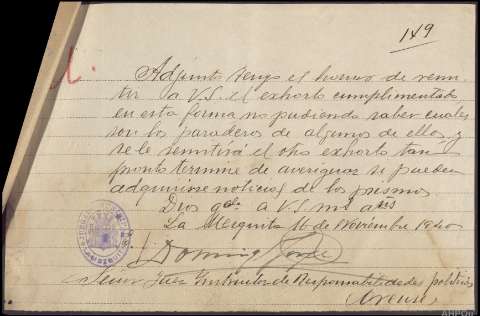 149
Adjunto tengo el honor de remi-
tir a V.S. el exhorto cumplimentado
en esta forma no pudiendo saber cuales
son los paraderos de algunos de ellos, y
se le remitirá el otro exhorto tan
pronto termine de averiguar si pueden
adquirirse noticias de los mismos
Dios gde a V.S. ms as
La Mezquita 16 de Noviembre 1940
Señor Juez Instructor de Responsabilidades politicas
Orense
AHPOu